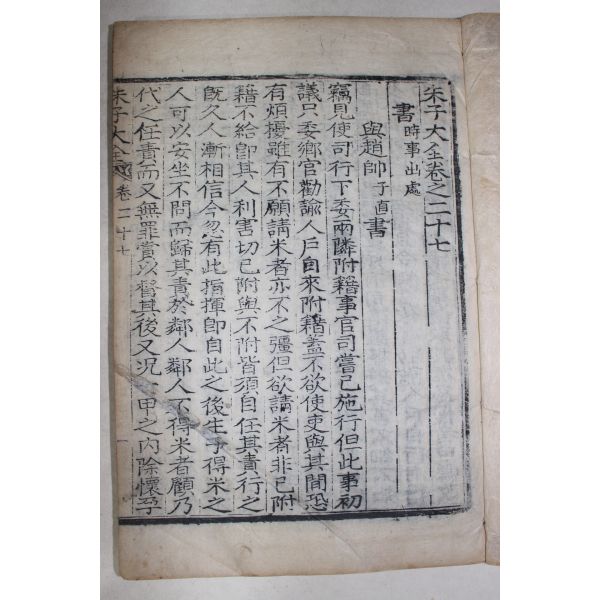 朱子大全卷之二十七
書 時事出處
與趙帥 子直 書
竊見使司行下委兩隣附籍事官司嘗已施行但此事初
議只委鄉官勸諭人戶自來附籍蓋不欲使吏與其間恐
有煩擾雖有不願請米者亦不之彊但欲請米者非已附
籍不給卽其人利害切己附與不附皆須自任其責行之
旣久人漸相信今忽有此指揮卽自此之後生子得米之
人可以安坐不問而歸其責於鄰人鄰人不得米者顧乃
代之任責而又無罪賞以督其後又況一甲之內除懷孕
朱子大全 卷二十七